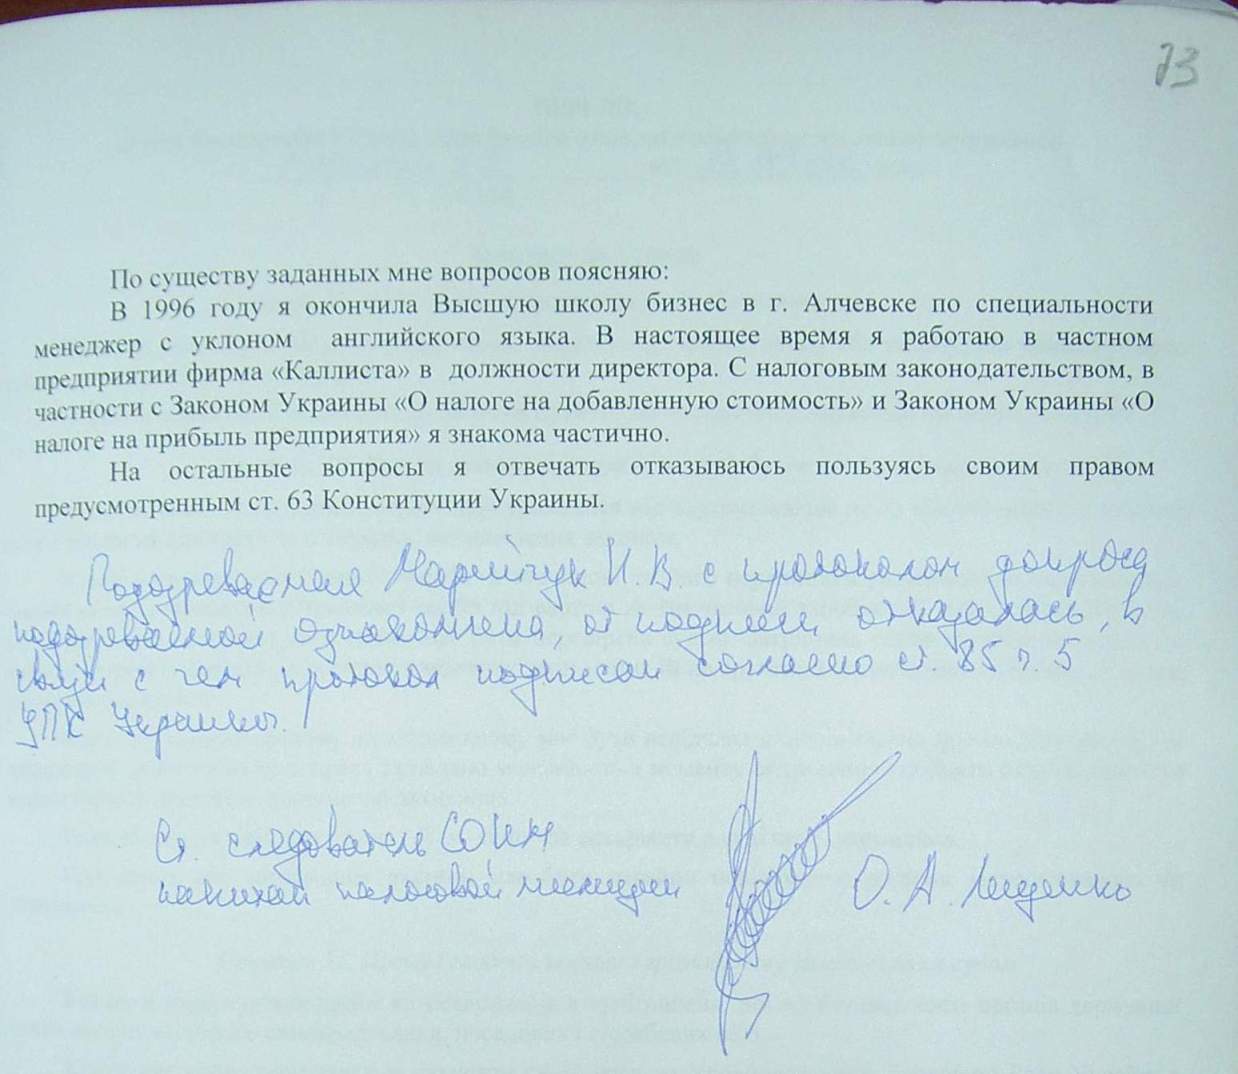 73
По существу заданных мне вопросов поясняю:
В 1996 году я окончила Высшую школу бизнес в г. Алчевске по специальности
менеджер с уклоном английского языка. В настоящее время я работаю в частном
предприятии фирма «Каллиста» в должности директора. С налоговым законодательством, в
частности с Законом Украины «О налоге на добавленную стоимость» и Законом Украины «О
налоге на прибыль предприятия» я знакома частично.
На остальные вопросы я отвечать отказываюсь пользуясь своим правом
предусмотренным ст. 63 Конституции Украины.
Подозреваемая И. В с протоколом допроса
подозреваемой ознакомлена, от подписи отказалась, в
связи с чем протокол подписан согласно ст. 85 п. 5
УПК Украины
Ст. следователь СО
налоговой милиции О. А. Лищенко